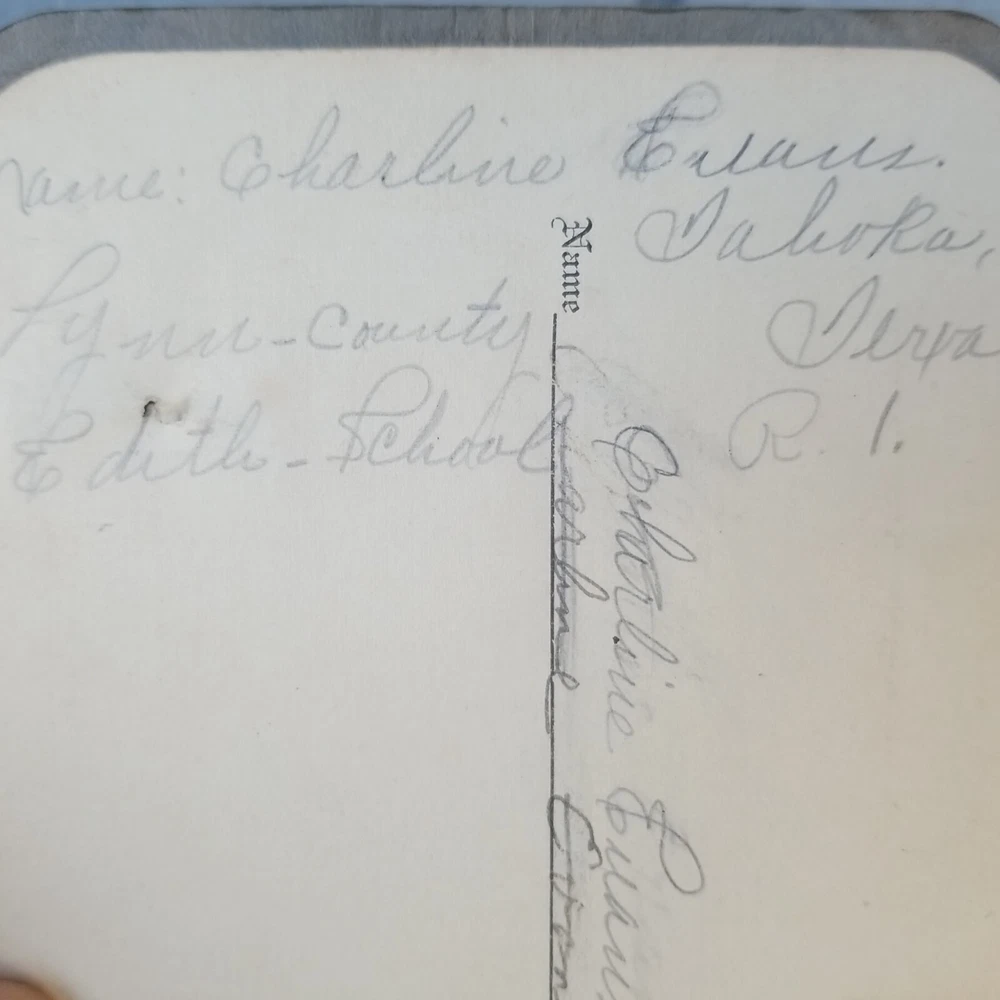 Name: Charline Evans.
Tahoka,
Lynn-County
Texa
Edith-School
R. 1.
Name Charline Evans
Charline Evans